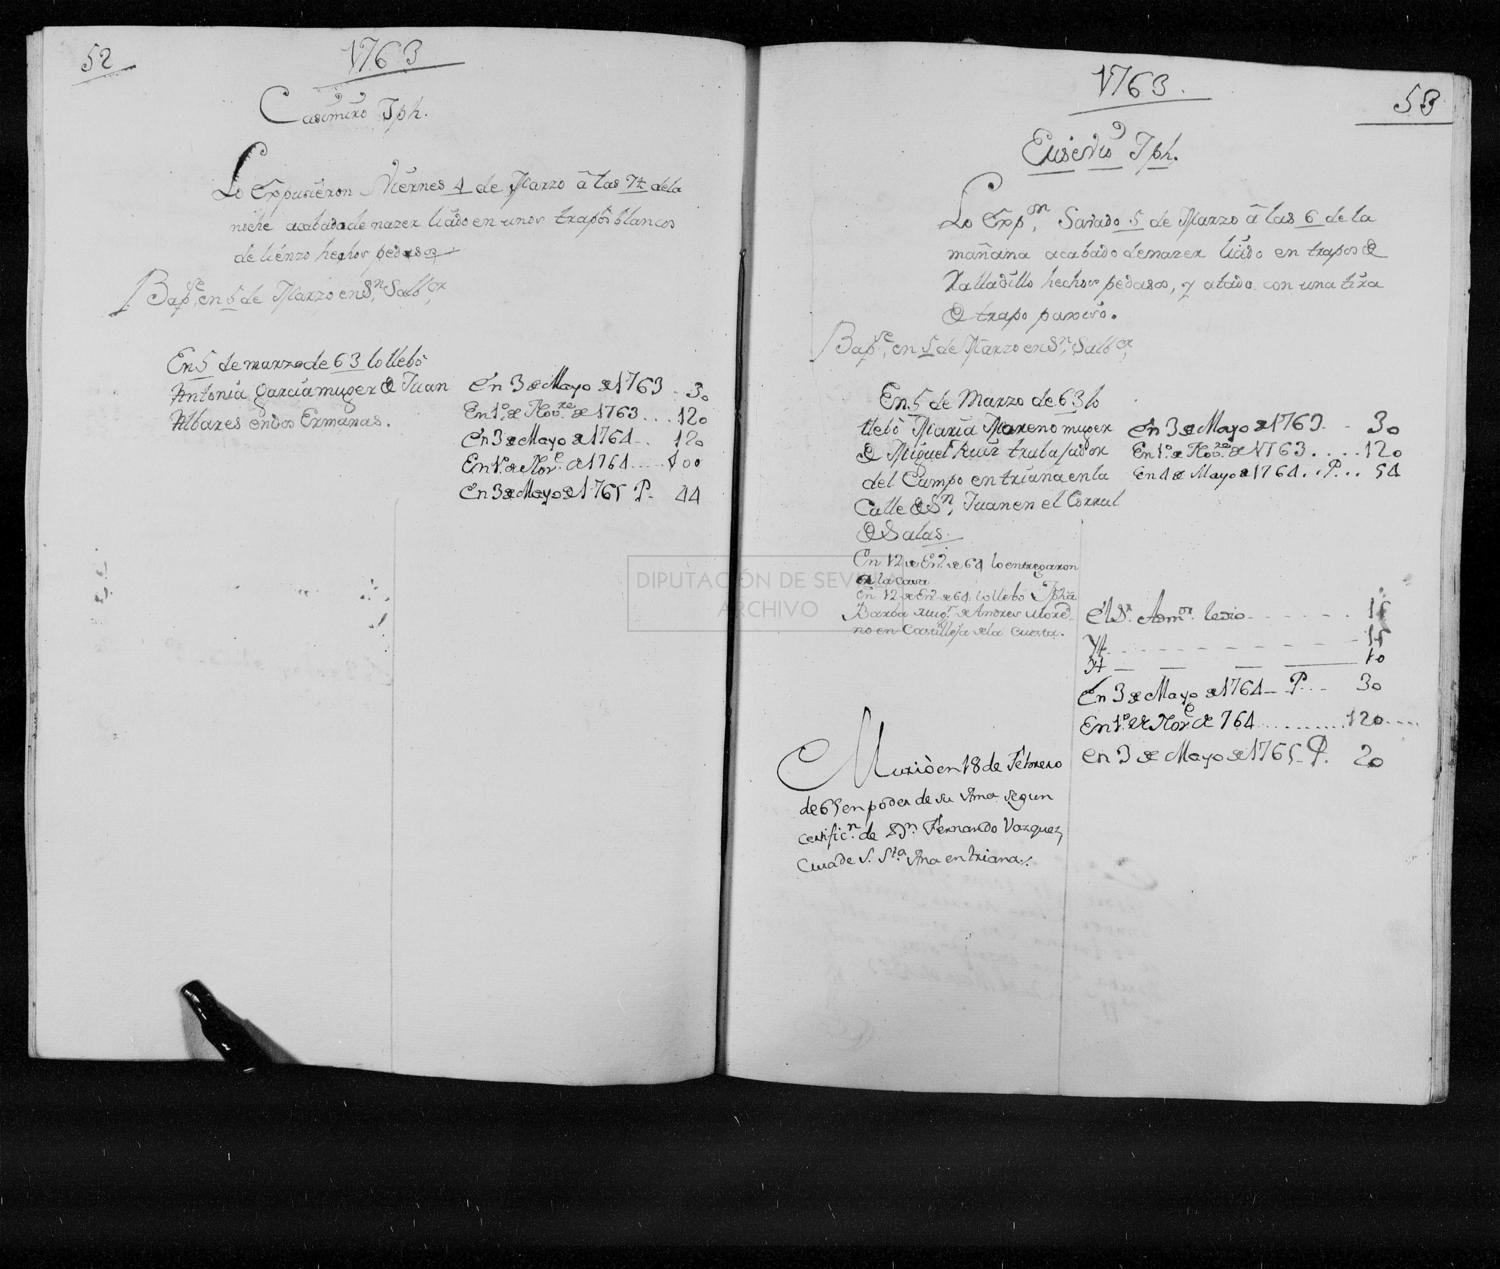 52
1763
Casimiro Jph.
Lo Exppusieron Viernes 4 de Marzo â las 7½ dela
noche acabado de nazer liado en unos trapos blancos
de lienzo hechos pedasos
Bapse. en 5 de Marzo en Sn. Salbor.
En 5 de marzo de 63 lo llebò
Antonia garcia muger de Juan
Albares en dos Ermanas.
En 3 de Mayo de 1763 . 30
En 1º de Novre de 1763 . . . 120
En 3 de Mayo de 1764 . . 120
En 1º de Nove. de 1764 . . . . 100
En 3 de Mayo de 1765 P. 44
1763.
53
Eusevio Jph.
Lo Exppon. Savado 5 de Marzo â las 6 de la
mañana acabado de nazer liado en trapos de
Valladillo hechos pedasos, y atado con una tira
de trapo
Bapse. en 5 de Marzo en Sn. Salbor.
En 5 de Marzo de 63 lo
llebò Maria Moreno muger
de Miguel Ruiz trabajador
del Campo en triana en la
Calle de Sn. Juan en el Corral
de Salas.
En 3 de Mayo de 1763 . . 30
En 1º de Novre de 1763 . . . . 120
En 4 de Mayo de 1764 . . P. . . 54
En 12 de Enº de 64 lo entregaron
en la casa
En 12 de Enº de 64 lo llebò Jpha
Barba Mugr. de Andres More-
no en Castilleja de la Cuesta.
El Sr. Admor. le dio - - - - - - 15
Yt. - - - - - - - - - 15
Yt — — — — 10
En 3 de Mayo de 1764 — P. . . 30
En 1º de Nove. de 764 . . . . . . . . . 120 . . . .
en 3 de Mayo de 1765 P. 20
Muriò en 18 de Febrero
de 65 en poder de su Ama segun
certificn. de Dn. Fernando Vazquez
Cura de S. Sta Ana en triana.
DIPUTACIÓN DE SEVILLA
ARCHIVO